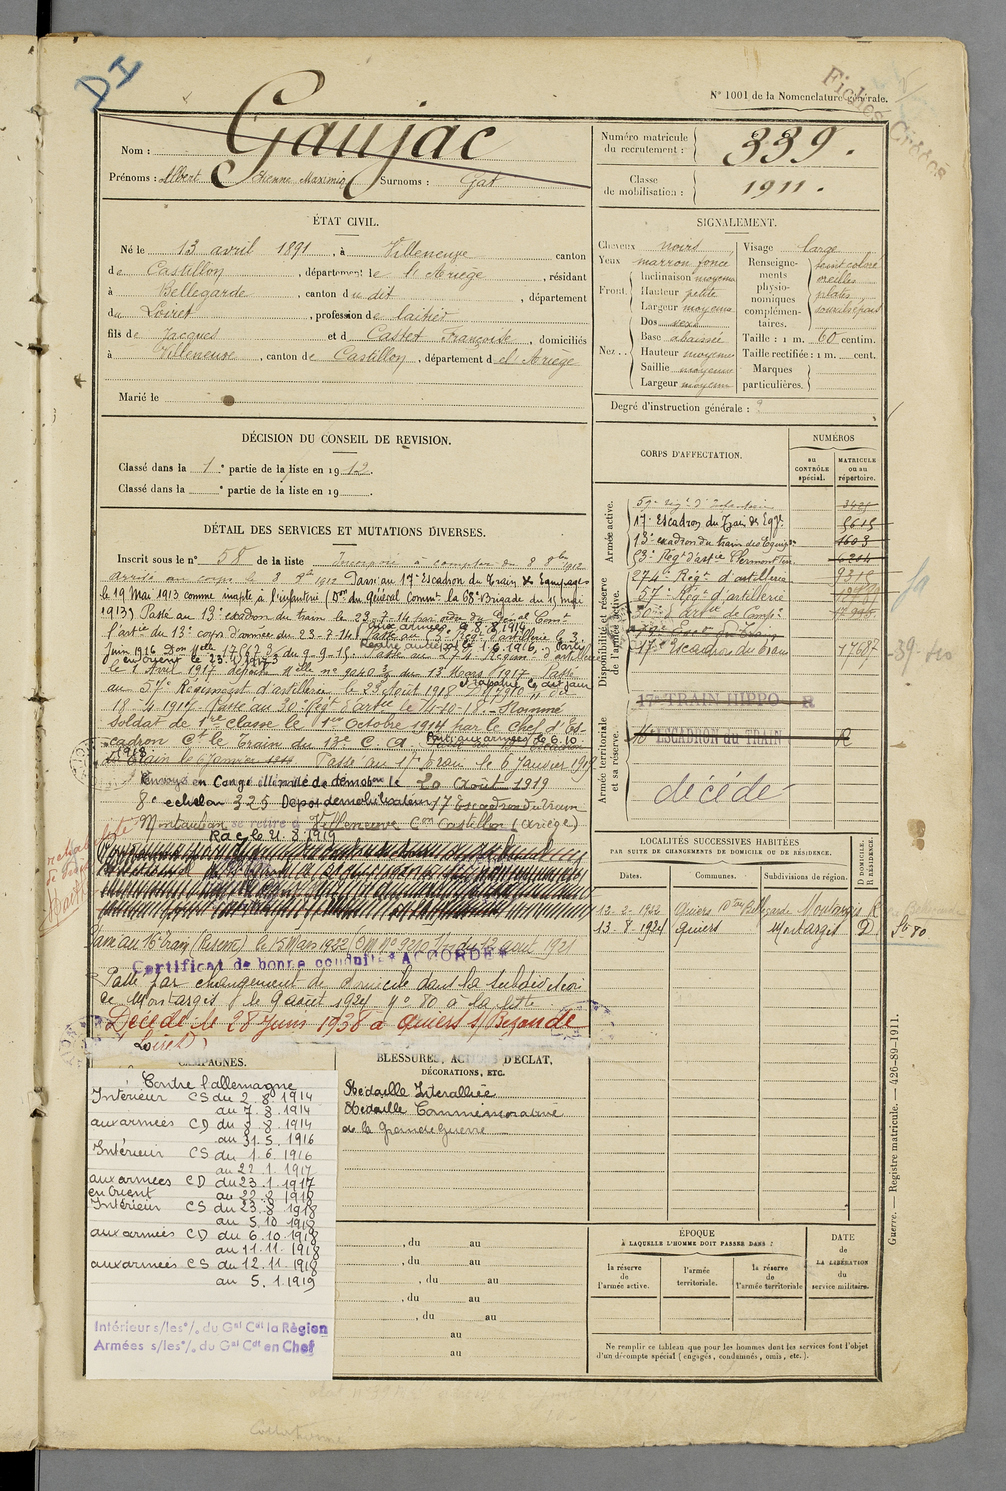 DI
Fiches Croisées
N° 1001 de la Nomenclature générale.
Nom : Gaujac
Prénoms : Albert Etienne Maximin Surnoms : Gat
Numéro matricule du recrutement : 339.
Classe de mobilisation : 1911.
ÉTAT CIVIL.
Né le 13 avril 1891, à Villeneuve canton
de Castillon, département de l'Ariège, résidant
à Bellegarde, canton du dit, département
du Loiret, profession de laitier
fils de Jacques et de Castet Françoise, domiciliés
à Villeneuve, canton de Castillon, département de l'Ariège
Marié le
SIGNALEMENT.
Cheveux noirs
Yeux marron foncé
Front. Inclinaison moyenne
Hauteur petite
Largeur moyenne
Nez. Dos vexe
Base abaissée
Hauteur moyenne
Saillie moyenne
Largeur moyenne
Visage large
Renseignements physionomiques complémentaires. teint coloré
oreilles
plates
sourcils épais
Taille : 1 m. 60 centim.
Taille rectifiée : 1 m. cent.
Marques particulières.
Degré d'instruction générale : 2
DÉCISION DU CONSEIL DE REVISION.
Classé dans la 1e partie de la liste en 1912.
Classé dans la e partie de la liste en 19 .
CORPS D'AFFECTATION.
NUMÉROS
au CONTRÔLE spécial.
MATRICULE ou au répertoire.
Armée active.
59e Régt d'Infanterie
17e Escadron du Train des Eqges 5615
13e escadron du train des Equipages 1603
53e Régt d'artie Clermont-Fer.
Disponibilité et réserve de l'armée active.
274e Régt d'artillerie
57e Régt d'artillerie
17e Escadron du train 17687
Armée territoriale et sa réserve.
17e TRAIN HIPPO R
16e ESCADRON du TRAIN R
décédé
DÉTAIL DES SERVICES ET MUTATIONS DIVERSES.
Inscrit sous le n° 58 de la liste Incorporé à compter du 8 8bre 1912
Arrivé au corps le 8 8bre 1912 Passé au 17e Escadron du Train des Equipages
le 19 Mai 1913 comme inapte à l'infanterie (Don du Général Commt la 68e Brigade du 15 mai
1913) Passé au 13e escadron du train le 23-7-14 par ordre du Général Comt
aux armées le 8.8.1914
l'artie du 13e corps d'armée du 23-7-14. Passé au 53e Régt d'artillerie le 3
Rentré au dépôt le 1.6.1916. Parti
en Orient le 23.1.1917
le 1 Avril 1917
au 57e Régiment d'artillerie le 23 Août 1918
18-4-1917. Passé au 20e Régt d'artie le 14-10-18. Nommé
Soldat de 1re classe le 1er Octobre 1914 par le Chef d'Es-
cadron Ct le Train du 13e C. A. Parti aux armées le 6.10
1918
Passé au 17e train le 6 Janvier 1919
Envoyé en Congé illimité de démobon le 20 Août 1919
8e echelon 325 Depot demobilisateur 17 Escadron du Train
Montauban se retire à Villeneuve Con Castillon (Ariège)
R.a.c le 21.8.1919
Passé au 16e Train (Réserve) le 15 Mars 1922
Certificat de bonne conduite "ACCORDÉ"
Passé par changement de domicile dans la subdivision
de Montargis le 9 août 1924 n° 80 à la liste
Décédé le 28 Juin 1938 à Quiers s/ Bezonde
Loiret
LOCALITÉS SUCCESSIVES HABITÉES
PAR SUITE DE CHANGEMENTS DE DOMICILE OU DE RÉSIDENCE.
Dates.
Communes.
Subdivisions de région.
D DOMICILE. R RÉSIDENCE.
12-2-1922 Quiers Bellegarde Montargis R
13-8-1924 Quiers Montargis D
CAMPAGNES.
Contre l'allemagne
Intérieur CS du 2.8.1914
au 7.8.1914
aux armées CD du 8.8.1914
au 31.5.1916
Intérieur CS du 1.6.1916
au 22.1.1917
aux armées CD du 23.1.1917
en Orient au 22.8.1918
Intérieur CS du 23.8.1918
au 5.10.1918
aux armées CD du 6.10.1918
au 11.11.1918
aux armées CS du 12.11.1918
au 5.1.1919
Intérieur s/les o/. du Gal Cdt la Région
Armées s/les o/. du Gal Cdt en Chef
BLESSURES, ACTIONS D'ÉCLAT,
DÉCORATIONS, ETC.
Médaille Interalliée
Médaille Commémorative
de la Grande Guerre
, du au
, du au
, du au
, du au
, du au
au
au
ÉPOQUE
À LAQUELLE L'HOMME DOIT PASSER DANS :
la réserve de l'armée active.
l'armée territoriale.
la réserve de l'armée territoriale
DATE de LA LIBÉRATION du service militaire.
Ne remplir ce tableau que pour les hommes dont les services font l'objet
d'un décompte spécial (engagés, condamnés, omis, etc.).
Guerre. — Registre matricule. — 426-89-1911.